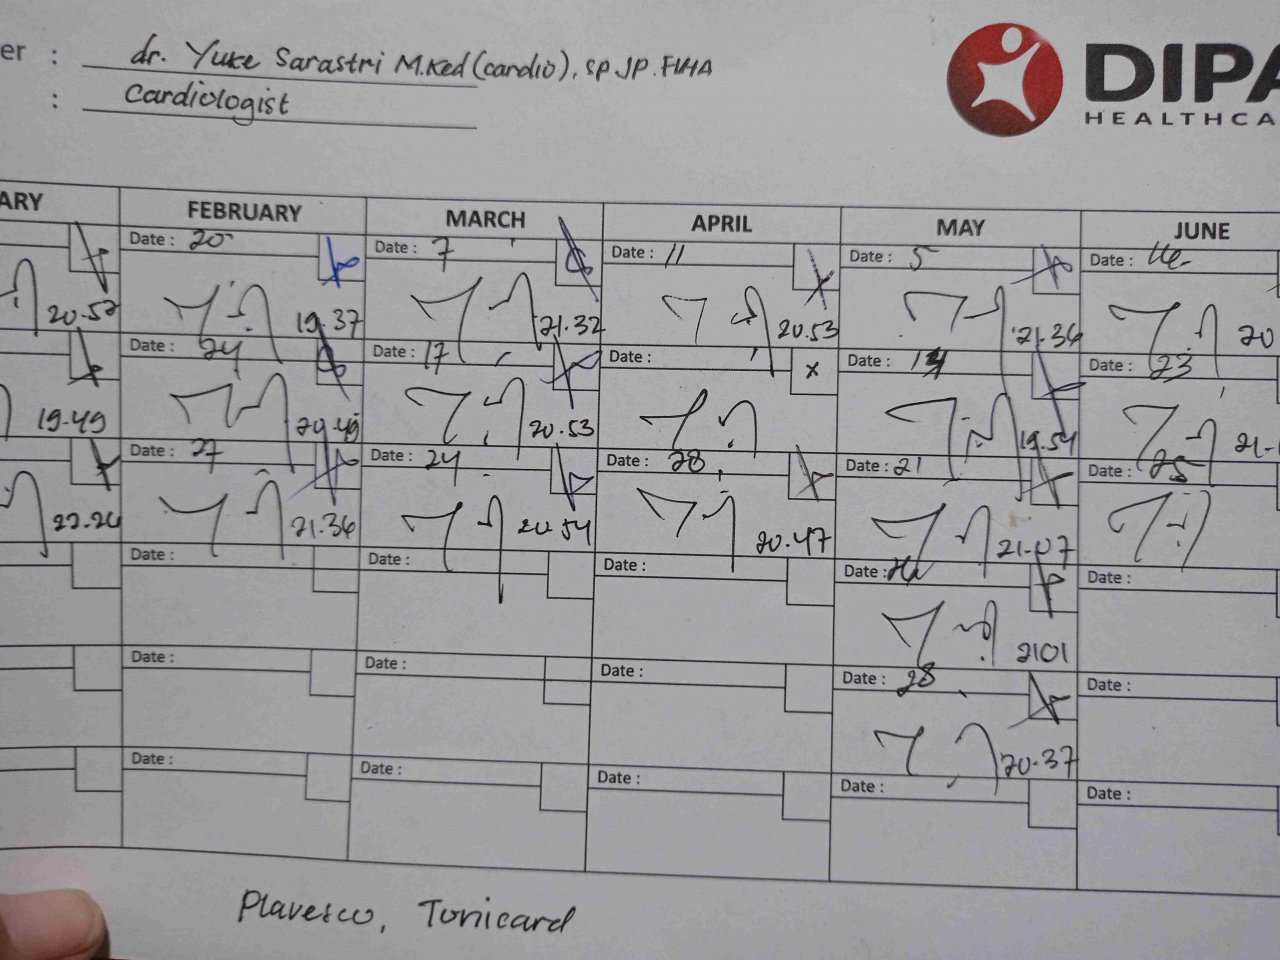 er : dr. Yuke Sarastri M.Ked (cardio), SP.JP. FIHA
: Cardiologist
DIPA
HEALTHCA
ARY FEBRUARY MARCH APRIL MAY JUNE
Date : 20 Date : 7 Date : 11 Date : 5 Date :
20.52 19.37 21.32 20.53 21.36 20
Date : 24 Date : 17 Date : x Date : Date : 23
19.49 20.49 20.53 19.54 21-
Date : 27 Date : 24 Date : 28 Date : 21 Date : 25
22.26 21.36 20.54 20.47 21.07
Date : Date : Date : Date : Date :
2101
Date : Date : Date : Date : 28 Date :
20.37
Date : Date : Date : Date : Date :
Plavesco, Tonicard